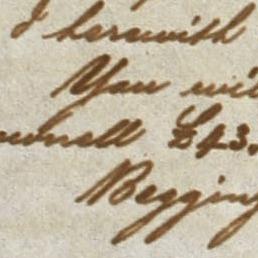 I herewith
You wil
wnell £43.
Begging